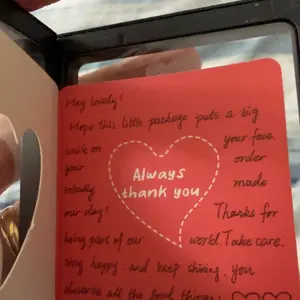 Hey lovely!
Hope this little package puts a big
smile on your face
your order
totally made
our day! Thanks for
being part of our world. Take care.
stay happy. and keep shining. you
deserve all the good things
Always
thank you